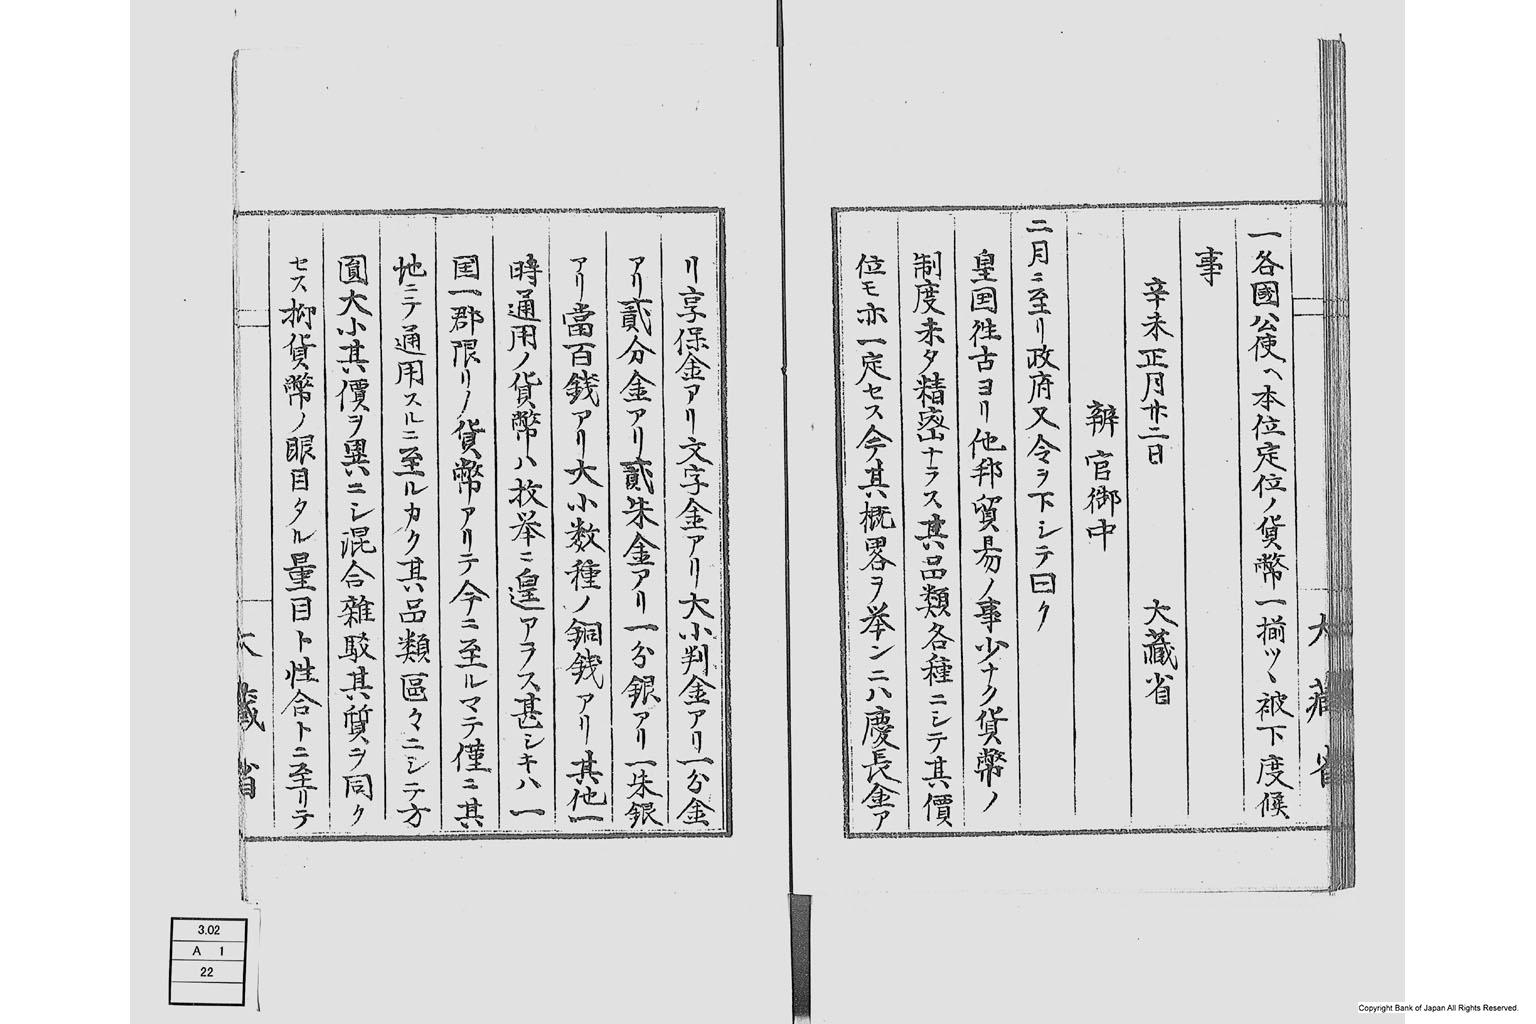 一各國公使ヘ本位定位ノ貨幣一揃ツヽ被下度候
事
辛未正月廿二日　大藏省
辨官御中
二月ニ至リ政府又令ヲ下シテ曰ク
皇国徃古ヨリ他邦貿易ノ事少ナク貨幣ノ
制度未タ精密ナラス其品類各種ニシテ其價
位モ亦一定セス今其概畧ヲ挙ンニハ慶長金ア
リ享保金アリ文字金アリ大小判金アリ一分金
アリ貳分金アリ貳朱金アリ一分銀アリ一朱銀
アリ當百銭アリ大小数種ノ銅銭アリ其他一
時通用ノ貨幣ハ枚挙ニ遑アラス甚シキハ一
国一郡限リノ貨幣アリテ今ニ至ルマテ僅ニ其
地ニテ通用スルニ至ルカク其品類區々ニシテ方
圓大小其價ヲ異ニシ混合雜駁其質ヲ同ク
セス抑貨幣ノ眼目タル量目ト性合トニ至リテ
大藏省
大藏省
3.02
A 1
22
Copyright Bank of Japan All Rights Reserved.